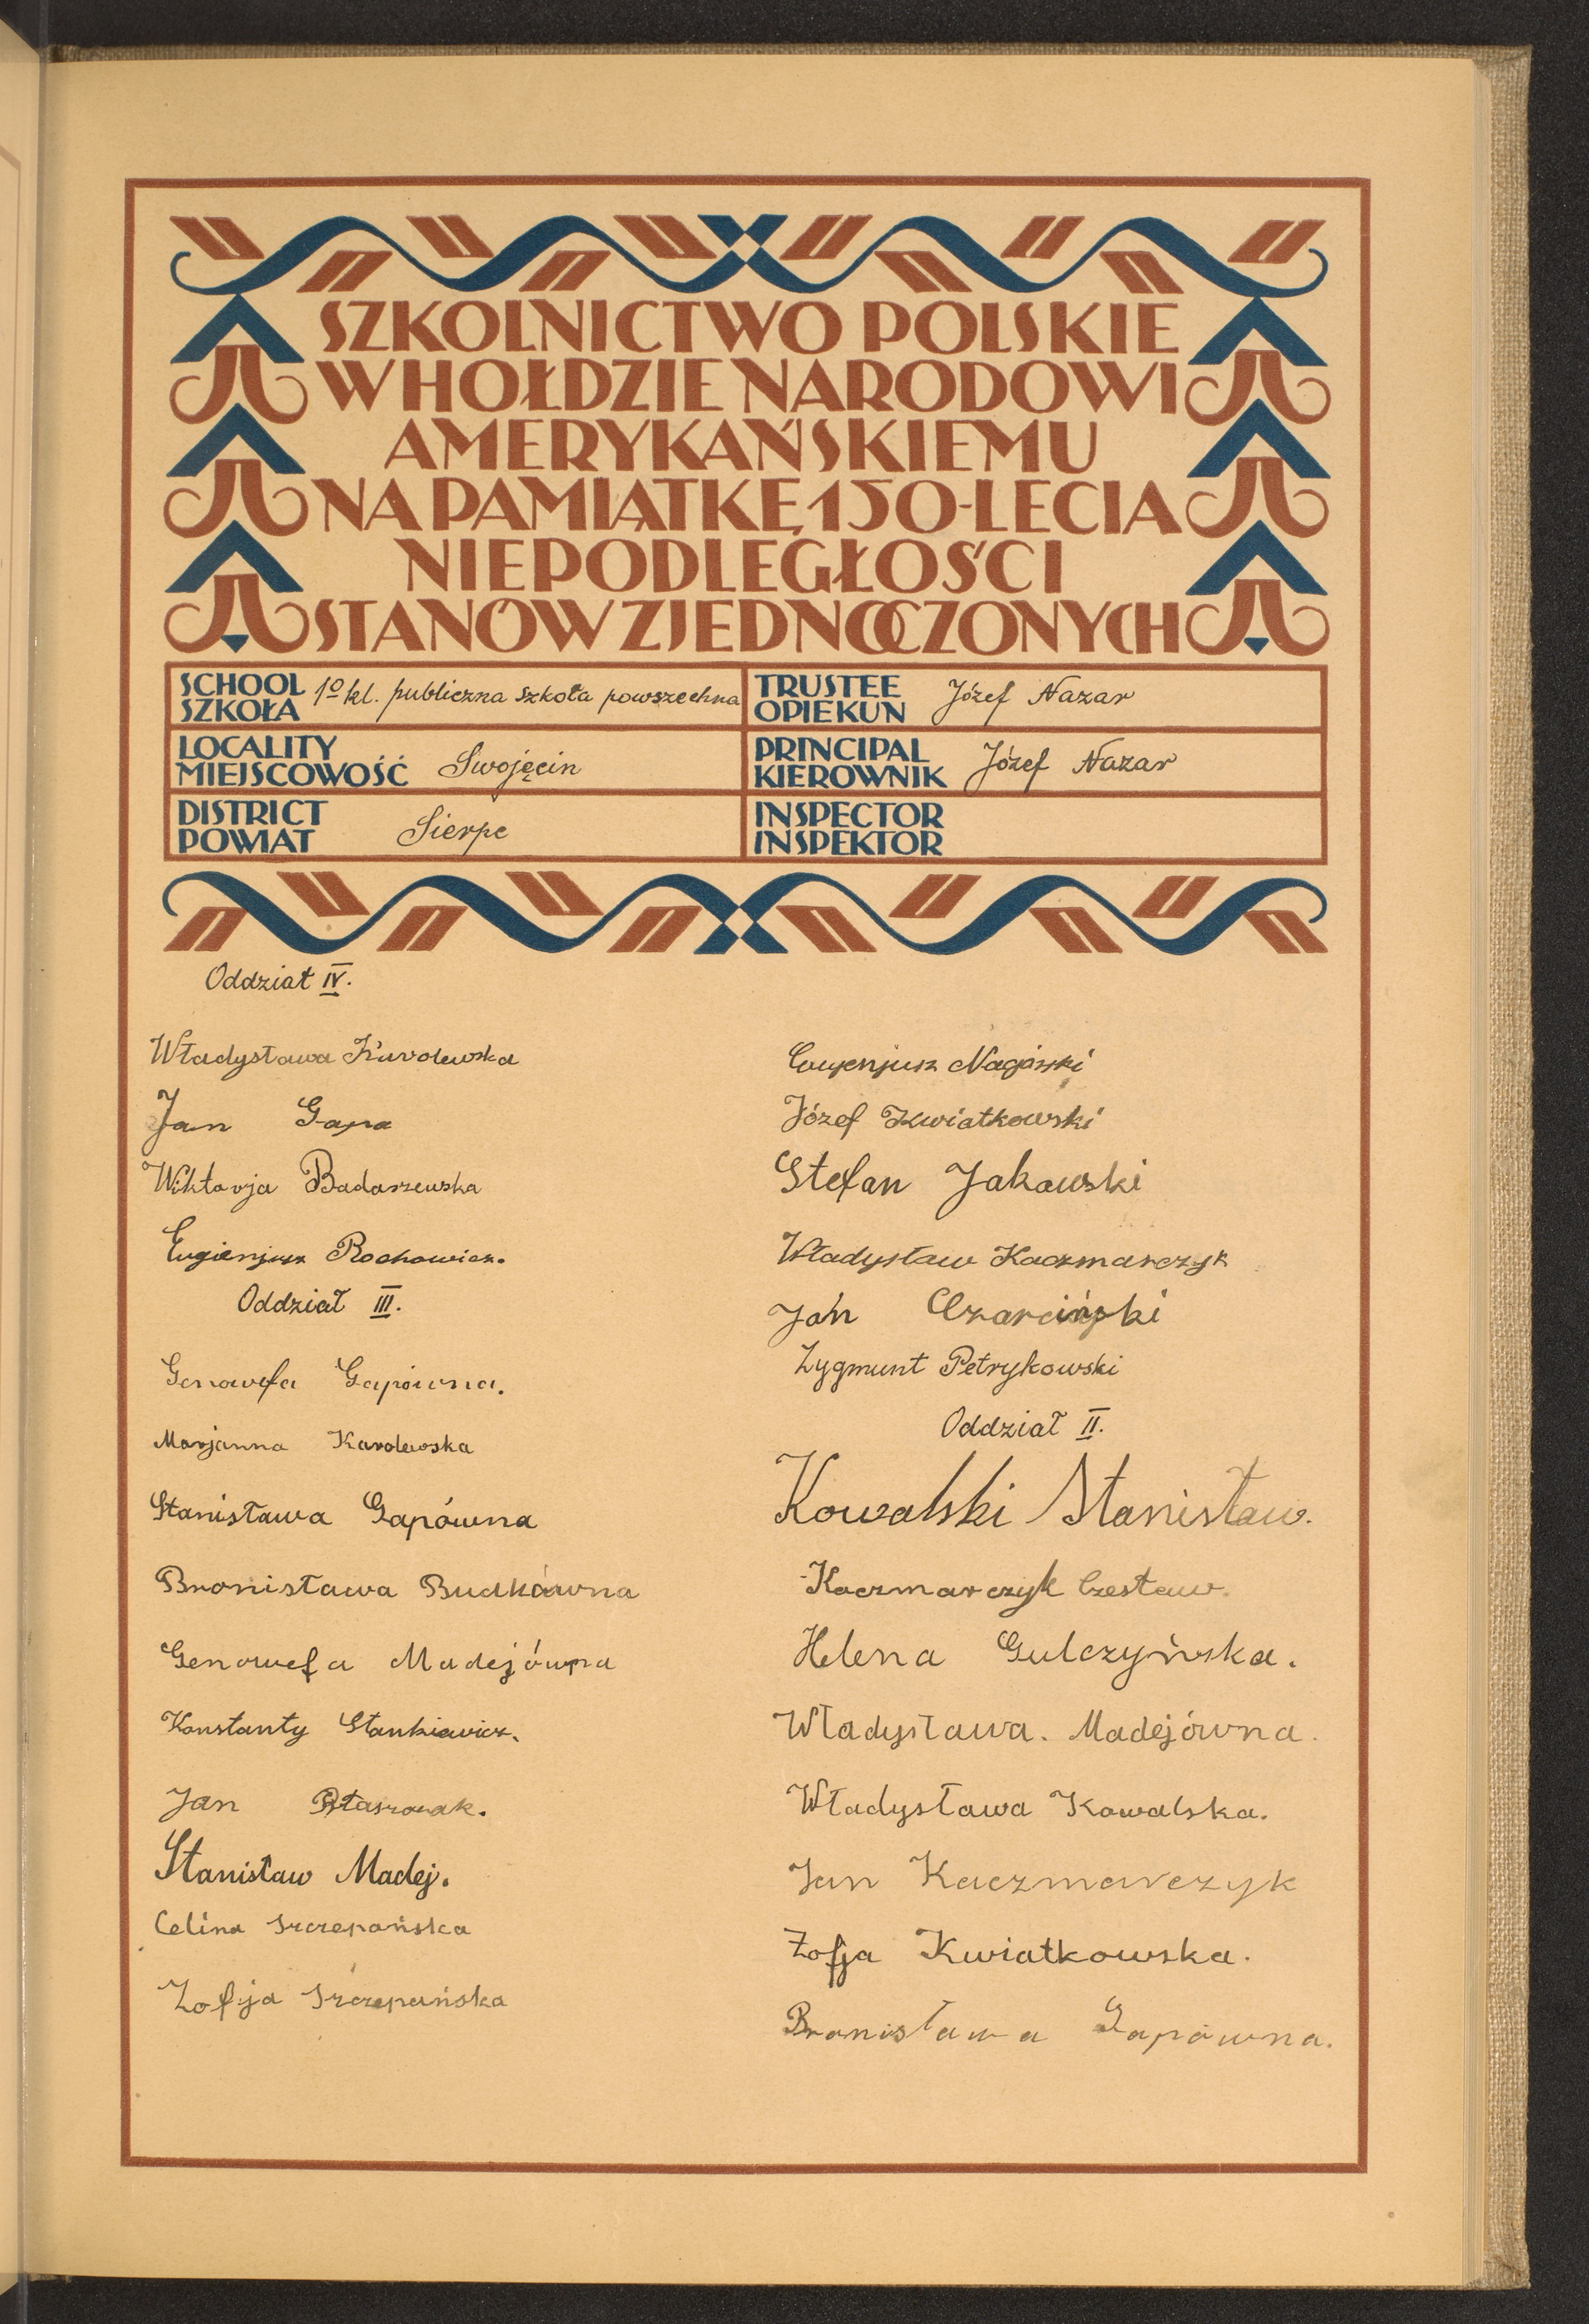 SZKOLNICTWO POLSKIE
W HOŁDZIE NARODOWI
AMERYKAŃSKIEMU
NA PAMIĄTKĘ 150-LECIA
NIEPODLEGŁOŚCI
STANÓW ZJEDNOCZONYCH
SCHOOL
SZKOŁA
1o kl. publiczna szkoła powszechna
TRUSTEE
OPIEKUN
Józef Nazar
LOCALITY
MIEJSCOWOŚĆ
Swojęcin
PRINCIPAL
KIEROWNIK
Józef Nazar
DISTRICT
POWIAT
Sierpc
INSPECTOR
INSPEKTOR
Oddział IV.
Władysława Karolewska
Jan Gapa
Wiktorja Badaszewska
Eugienjusz Rochowicz.
Oddział III.
Genowefa Gapówna.
Marjanna Karolewska
Stanisława Gapówna
Bronisława Budkówna
Genowefa Madejówna
Konstanty Stankiewicz.
Jan
Stanisław Madej.
Celina Szczepańska
Zofija Szczepańska
Eugenjusz Nagórski
Józef Kwiatkowski
Stefan Jakowski
Władysław Kaczmarczyk
Jan Czarciński
Zygmunt Petrykowski
Oddział II.
Kowalski Stanisław.
Kaczmarczyk Czesław.
Helena Gulczyńska.
Władysława. Madejówna.
Władysława Kowalska.
Jan Kaczmarczyk
Zofja Kwiatkowska.
Bronisława Gapówna.